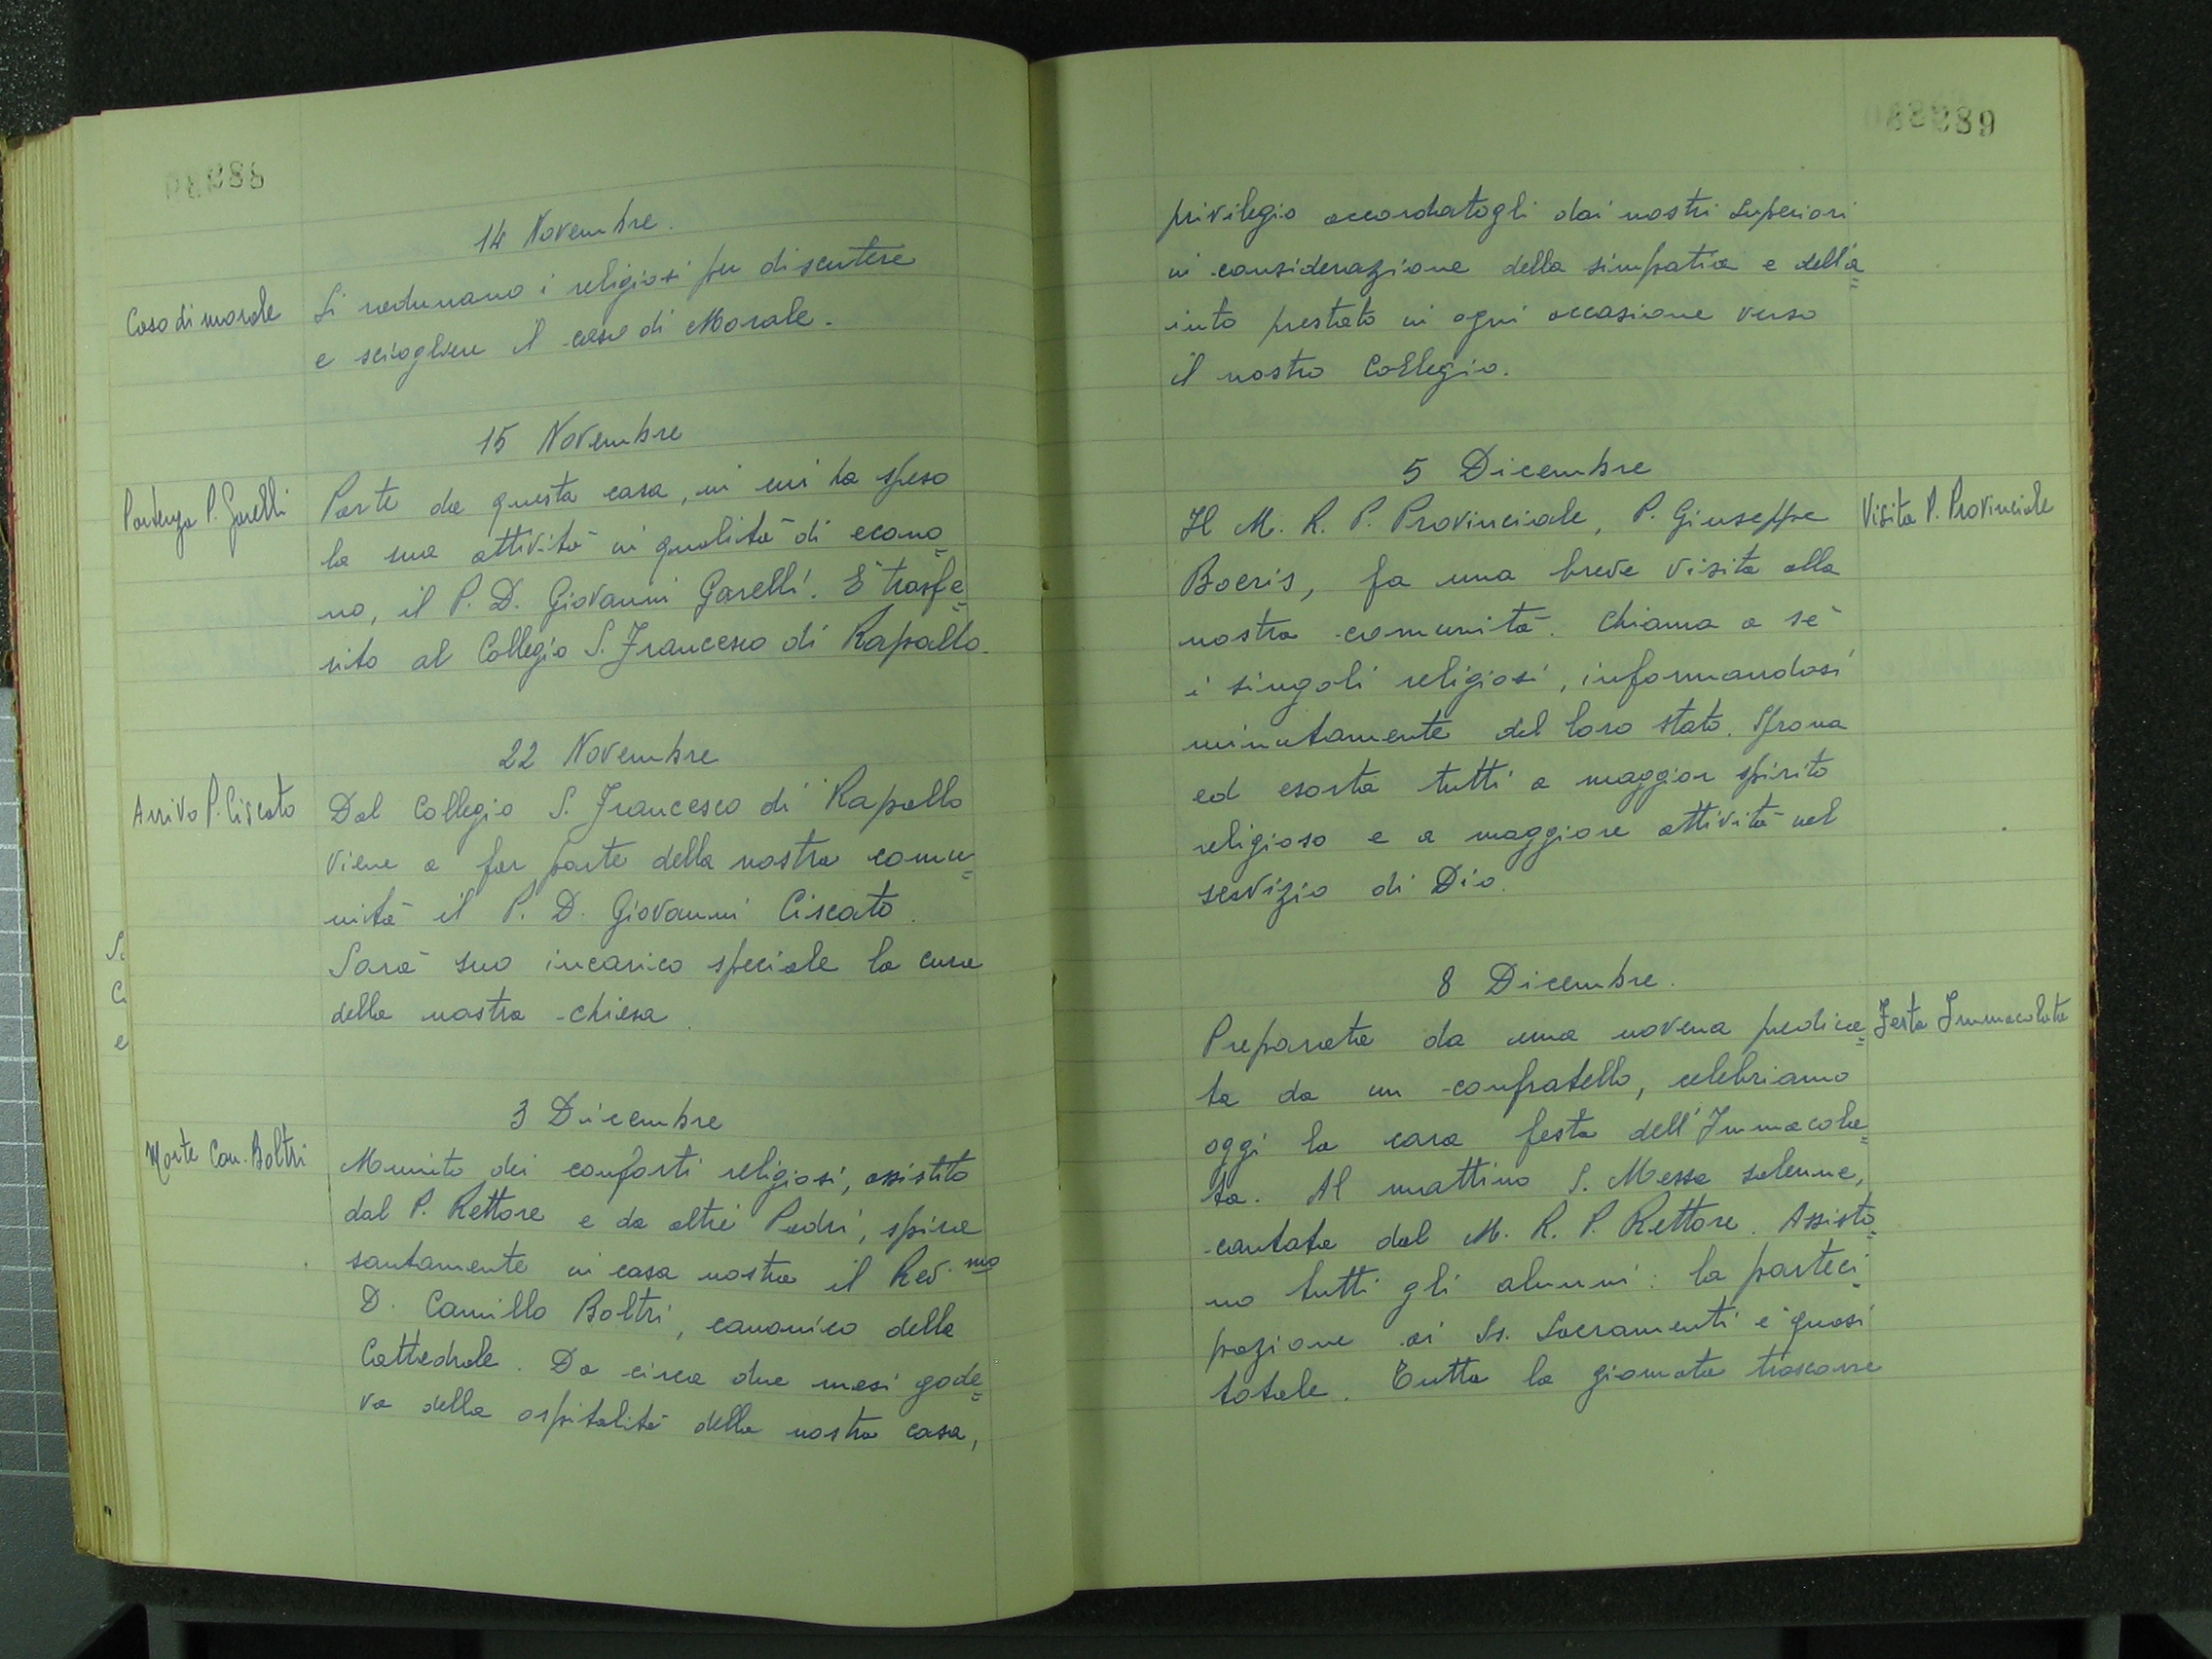 14 Novembre.
Caso di morale
Si radunano i religiosi per discutere
e sciogliere il caso di Morale.
15 Novembre
Partenza P. Garelli
Parte da questa casa, in cui ha speso
la sua attività in qualità di econo=
mo, il P. D. Giovanni Garelli. È trasfe=
rito al Collegio S. Francesco di Rapallo.
22 Novembre
Arrivo P. Ciscato
Dal Collegio S. Francesco di Rapallo
viene a far parte della nostra comu=
nità il P. D. Giovanni Ciscato.
Sarà suo incarico speciale la cura
della nostra chiesa.
3 Dicembre
Morte Can. Boltri
Munito dei conforti religiosi, assistito
dal P. Rettore e da altri Padri, spira
santamente in casa nostra il Rev.mo
D. Camillo Boltri, canonico della
Cattedrale. Da circa due mesi gode=
va della ospitalità della nostra casa,
89
privilegio accordatogli dai nostri Superiori
in considerazione della simpatia e dell'a=
iuto prestato in ogni occasione verso
il nostro Collegio.
5 Dicembre
Il M. R. P. Provinciale, P. Giuseppe
Visita P. Provinciale
Boeris, fa una breve visita alla
nostra comunità. Chiama a sè
i singoli religiosi, informandosi
minutamente del loro stato. Sprona
ed esorta tutti a maggior spirito
religioso e a maggiore attività nel
servizio di Dio.
8 Dicembre.
Preparata da una novena predica=
Festa Immacolata
ta da un confratello, celebriamo
oggi la cara festa dell'Immacola=
ta. Al mattino S. Messa solenne,
cantata dal M. R. P. Rettore. Assisto=
no tutti gli alunni: la parteci=
pazione ai Ss. Sacramenti è quasi
totale. Tutta la giornata trascorre